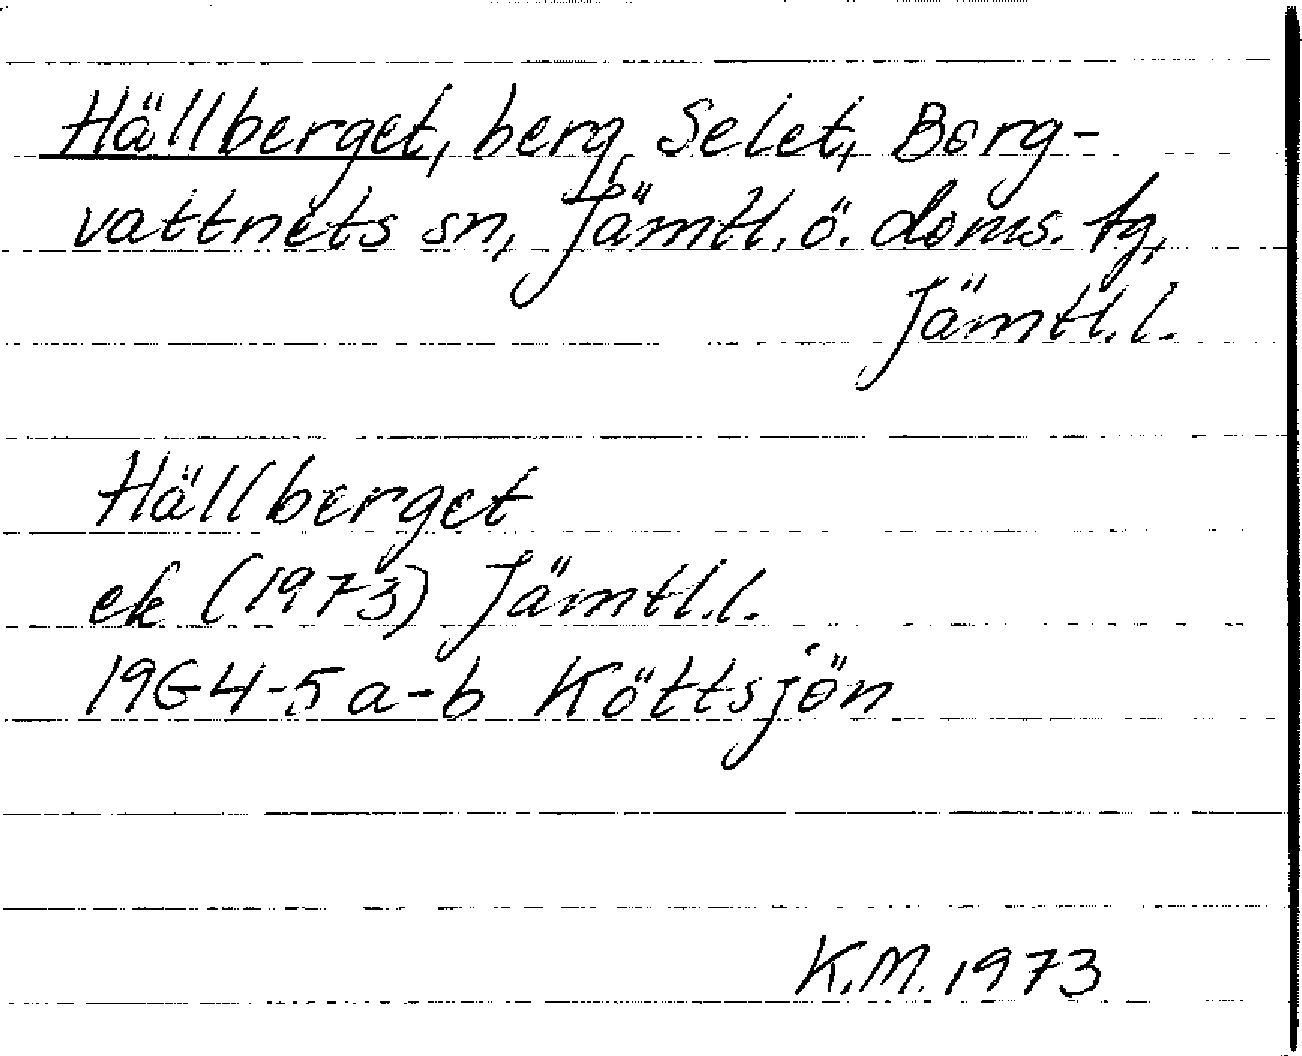 Hällberget, berg, Selet, Borg-
vattnets sn, Jämtl. ö. doms. tg,
Jämtl. l.
Hällberget
ek (1973) Jämtl. l.
19G4-5a-b Köttsjön
K.M. 1973